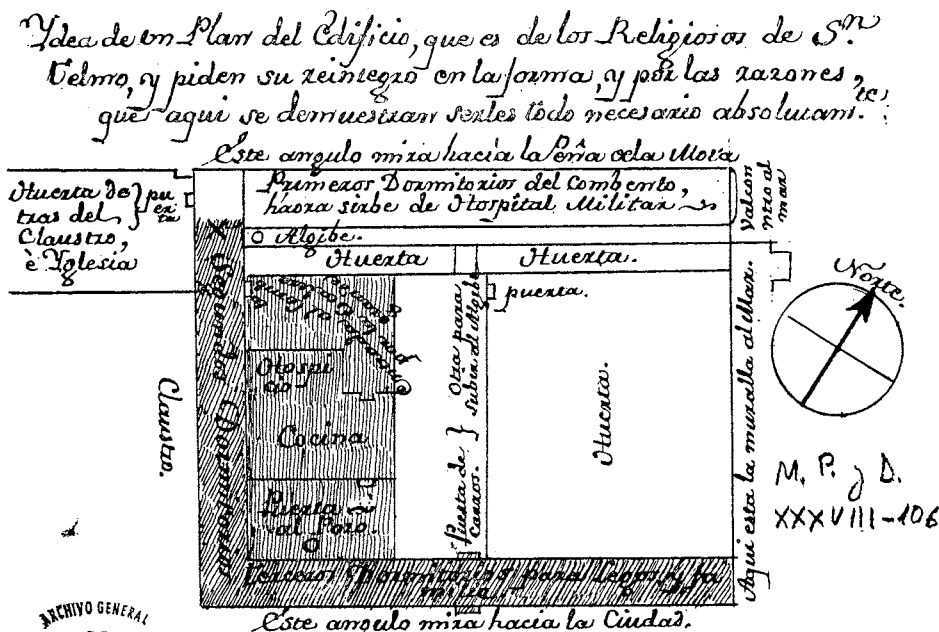 Ydea de un Plan del Edificio, que es de los Religiosos de Sn.
Telmo, y piden su reintegro en la forma, y por las razones,
que aqui se demuestran serles todo necesario absolutamte.
Este angulo mira hacia la Peña de la Mota
Huerta de
tras del
Claustro,
è Yglesia
puerta
Primeros Dormitorios del Combento,
haora sirbe de Hospital Militar
Valcon
ntro al
mar
Algibe.
Huerta
Huerta.
Segundos Dormitorios
Claustro.
Hospi
cio
Cocina
Puerta
al Pozo.
Puerta de
carros.
Otra para
subir al Algibe
puerta.
Huerta.
Aqui esta la muralla al Mar.
Norte.
M. P. y D.
XXXVIII-106
Terceros Dormitorios para legos, y fa
milia.
Este angulo mira hacia la Ciudad.
ARCHIVO GENERAL